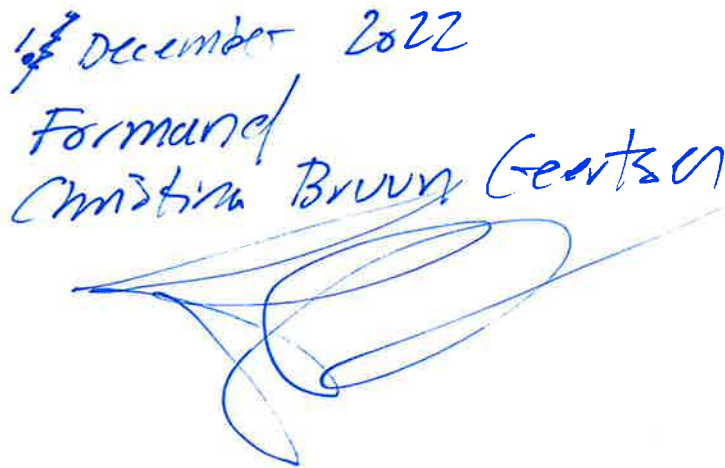 December 2022
Formand
Christina Bruun Geertsen